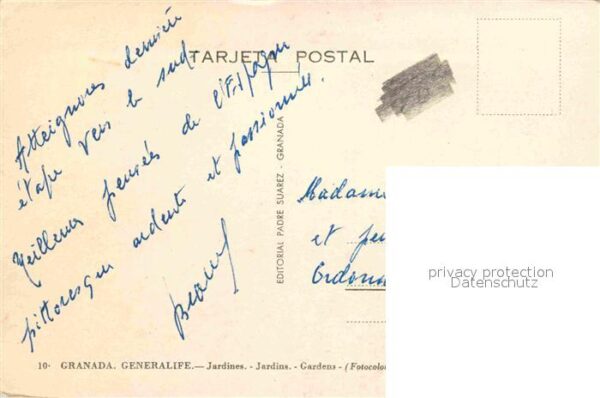 TARJETA POSTAL
Atteignons dernière
étape vers le sud
Meilleures pensées de l'Espagne
pittoresque ardente et passionnée.
EDITORIAL PADRE SUAREZ - GRANADA
Madame
et
privacy protection
Datenschutz
10- GRANADA. GENERALIFE.—Jardines. - Jardins. - Gardens - (Fotocolo